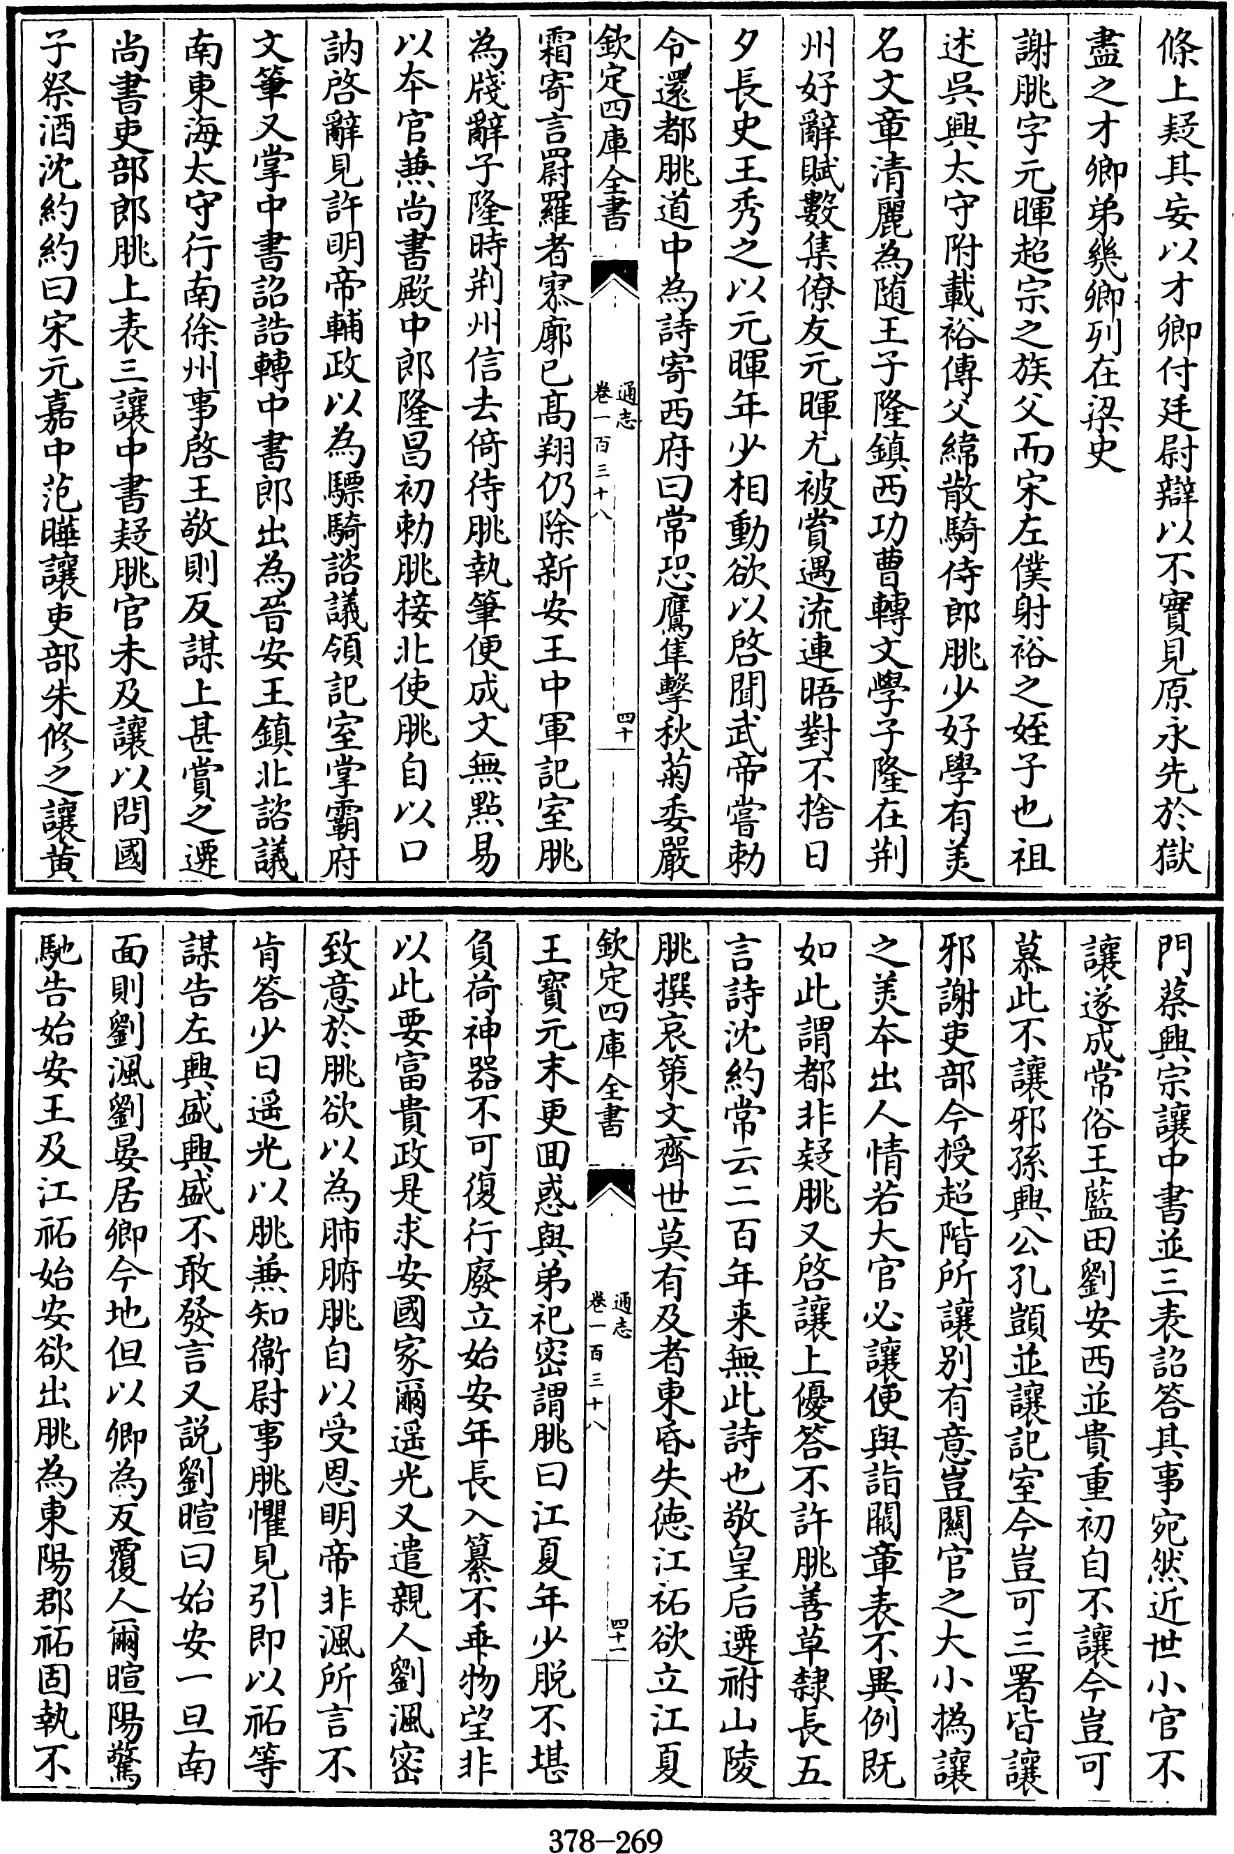 條上疑其妄以才卿付廷尉辯以不實見原永先於獄
盡之才卿弟幾卿列在梁史
謝朓字元暉超宗之族父而宋左僕射裕之姪子也祖
述吳興太守附載裕傳父緯散騎侍郎朓少好學有美
名文章清麗為隨王子隆鎮西功曹轉文學子隆在荆
州好辭賦數集僚友元暉尤被賞遇流連晤對不捨日
夕長史王秀之以元暉年少相動欲以啓聞武帝嘗勅
令還都朓道中為詩寄西府曰常恐鷹隼擊秋菊委嚴
欽定四庫全書
通志
卷一百三十八
四十
霜寄言罻羅者寥廓已髙翔仍除新安王中軍記室朓
為牋辭子隆時荆州信去倚待朓執筆便成文無點易
以本官兼尚書殿中郎隆昌初勅朓接北使朓自以口
訥啓辭見許明帝輔政以為驃騎諮議領記室掌霸府
文筆又掌中書詔誥轉中書郎出為晉安王鎮北諮議
南東海太守行南徐州事啓王敬則反謀上甚賞之遷
尚書吏部郎朓上表三讓中書疑朓官未及讓以問國
子祭酒沈約約曰宋元嘉中范曄讓吏部朱修之讓黃
門蔡興宗讓中書並三表詔答其事宛然近世小官不
讓遂成常俗王藍田劉安西並貴重初自不讓今豈可
慕此不讓邪孫興公孔顗並讓記室今豈可三署皆讓
邪謝吏部今授超階所讓別有意豈關官之大小撝讓
之美本出人情若大官必讓便與詣闕章表不異例既
如此謂都非疑朓又啓讓上優答不許朓善草隸長五
言詩沈約常云二百年来無此詩也敬皇后遷祔山陵
朓撰哀策文齊世莫有及者東昏失德江祏欲立江夏
欽定四庫全書
通志
卷一百三十八
四十一
王寶元末更回惑與弟祀密謂朓曰江夏年少脱不堪
負荷神器不可復行廢立始安年長入纂不乖物望非
以此要富貴政是求安國家爾遥光又遣親人劉渢密
致意於朓欲以為肺腑朓自以受恩明帝非渢所言不
肯答少日遥光以朓兼知衞尉事朓懼見引即以祏等
謀告左興盛興盛不敢發言又説劉暄曰始安一旦南
面則劉渢劉晏居卿今地但以卿為反覆人爾暄陽驚
馳告始安王及江祏始安欲出朓為東陽郡祏固執不
378-269